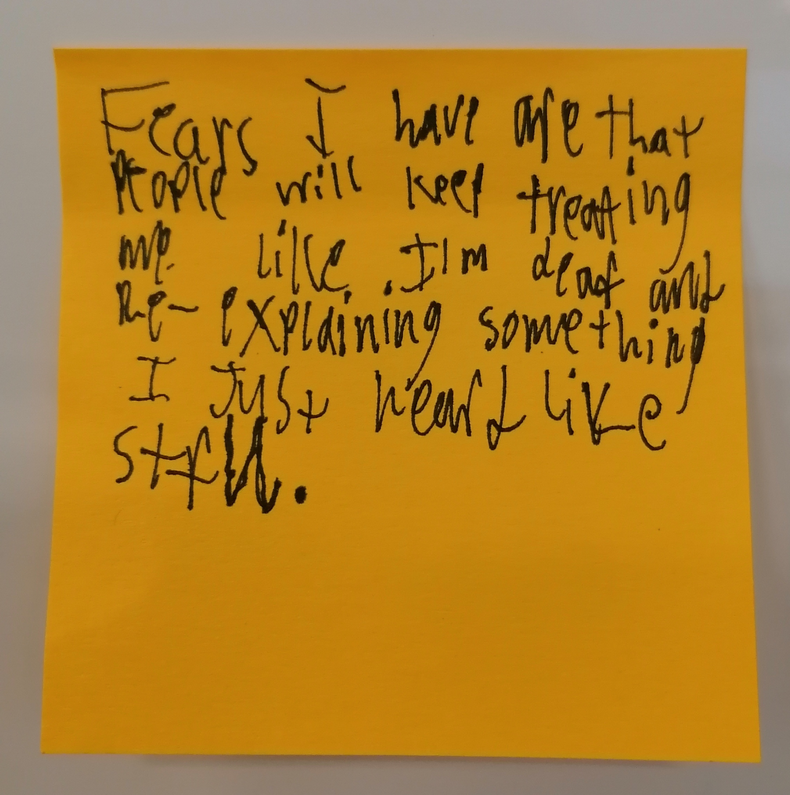 Fears I have are that
People will keep treating
me like I'm deaf and
Re-explaining something
I just heard like